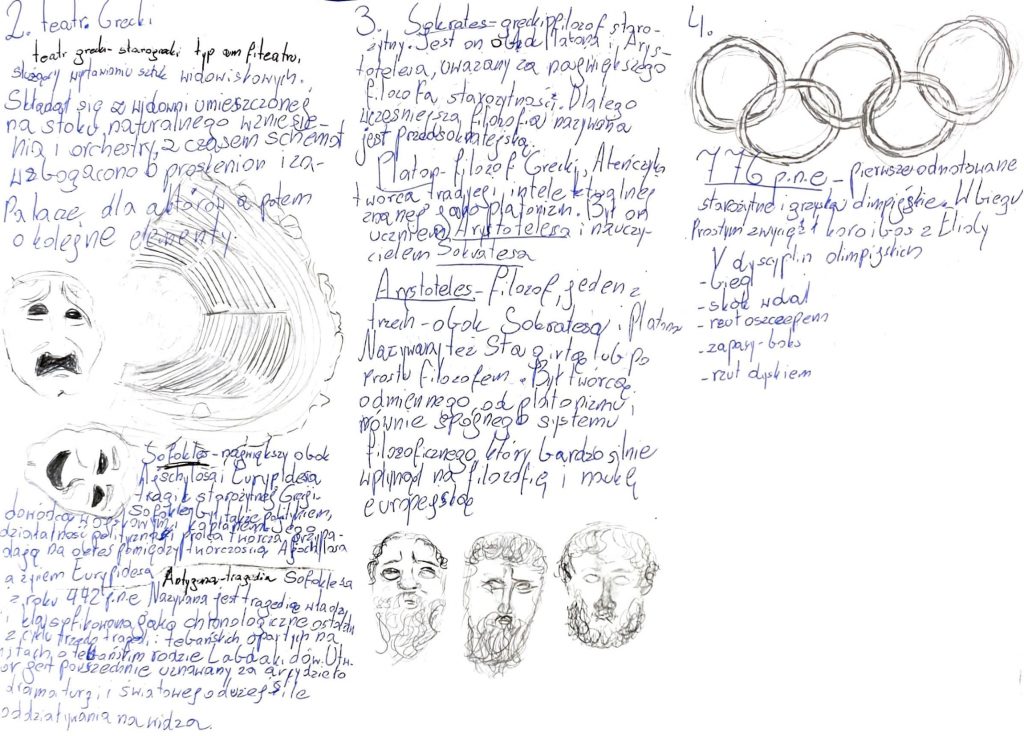 2. teatr. Grecki
teatr grecki-starogrecki typ amfiteatru,
służący wystawianiu sztuk widowiskowych.
Składał się z widowni umieszczonej
na stoku, naturalnego wzniesie-
nia i orchestry, z czasem schemat
wzbogacono o proskenion i za-
Palacze dla aktórów a potem
o kolejne elementy.
Sofokles-największy obok
Aeschylosa i Eurypidesa
tragik starożytnej Grecji-
Sofokles był także politykiem,
dowódcą wojskowym i kapłanem. Jego
działalność polityczna i praca twórcza przypa-
dają na okres pomiędzy twórczością Ajschylosa
a życiem Eurypidesa
Antygona-tragedia Sofoklesa
z roku 442 p.n.e Nazywana jest tragedią władzy
i klasyfikowana jako chronologicznie ostatnia
z cyklu trzech tragedii tebańskich opartych na
mitach o tebańskim rodzie Labdakidów. Utw-
ór jest powszechnie uznawany za arcydzieło
dramaturgii światowego o dużej sile
oddziaływania na widza.
3. Sokrates-grecki filozof staro-
żytny. Jest on obok Platona i Arys-
totelesa, uważany za największego
filozofa starożytności. Dlatego
wcześniejsza filozofia nazywana
jest przedsokratejską.
Platon-filozof Grecki, Ateńczyk
twórca tradycji intelektualnej
znanej jako platonizm. Był on
uczniem Arystotelesa i nauczy-
cielem Sokratesa
Arystoteles-filozof, jeden z
trzech-obok Sokratesa i Platona
Nazywany też Stagirytą lub po
prostu filozofem. Był twórcą
odmiennego, od platonizmu i
równie spójnego systemu
filozoficznego, który bardzo silnie
wpłynął na filozofię i naukę
europejską
4.
776 p.n.e - pierwsze odnotowane
starożytne igrzyska olimpijskie. W biegu
Prostym zwyciężył koroibos z Elidy
V dyscyplin olimpijskich
- biegi
- skok w dal
- rzut oszczepem
- zapasy-boks
- rzut dyskiem